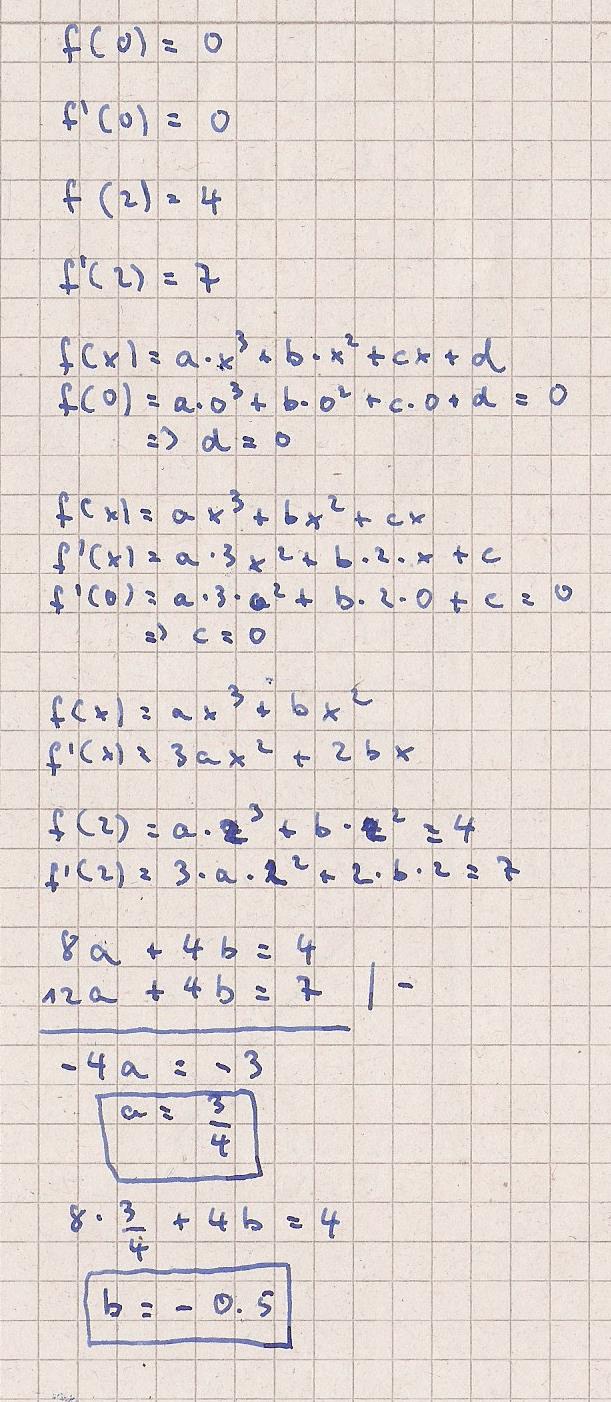 f(0) = 0
f'(0) = 0
f(2) = 4
f'(2) = 7
f(x) = a·x³ + b·x² + cx + d
f(0) = a·0³ + b·0² + c·0 + d = 0
=> d = 0
f(x) = ax³ + bx² + cx
f'(x) = a·3x² + b·2·x + c
f'(0) = a·3·0² + b·2·0 + c = 0
=> c = 0
f(x) = ax³ + bx²
f'(x) = 3ax² + 2bx
f(2) = a·2³ + b·2² = 4
f'(2) = 3·a·2² + 2·b·2 = 7
8a + 4b = 4
12a + 4b = 7 | -
-4a = -3
a = 3/4
8·3/4 + 4b = 4
b = -0.5